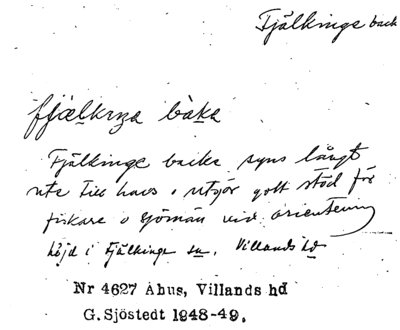 Fjälkinge back
fjælkıŋa bàka
Fjälkinge backe syns långt
ute till havs o utgör gott stöd för
fiskare o sjömän vid orientering
höjd i Fjälkinge sn. Villands hd
Nr 4627 Åhus, Villands hd
G. Sjöstedt 1948-49.